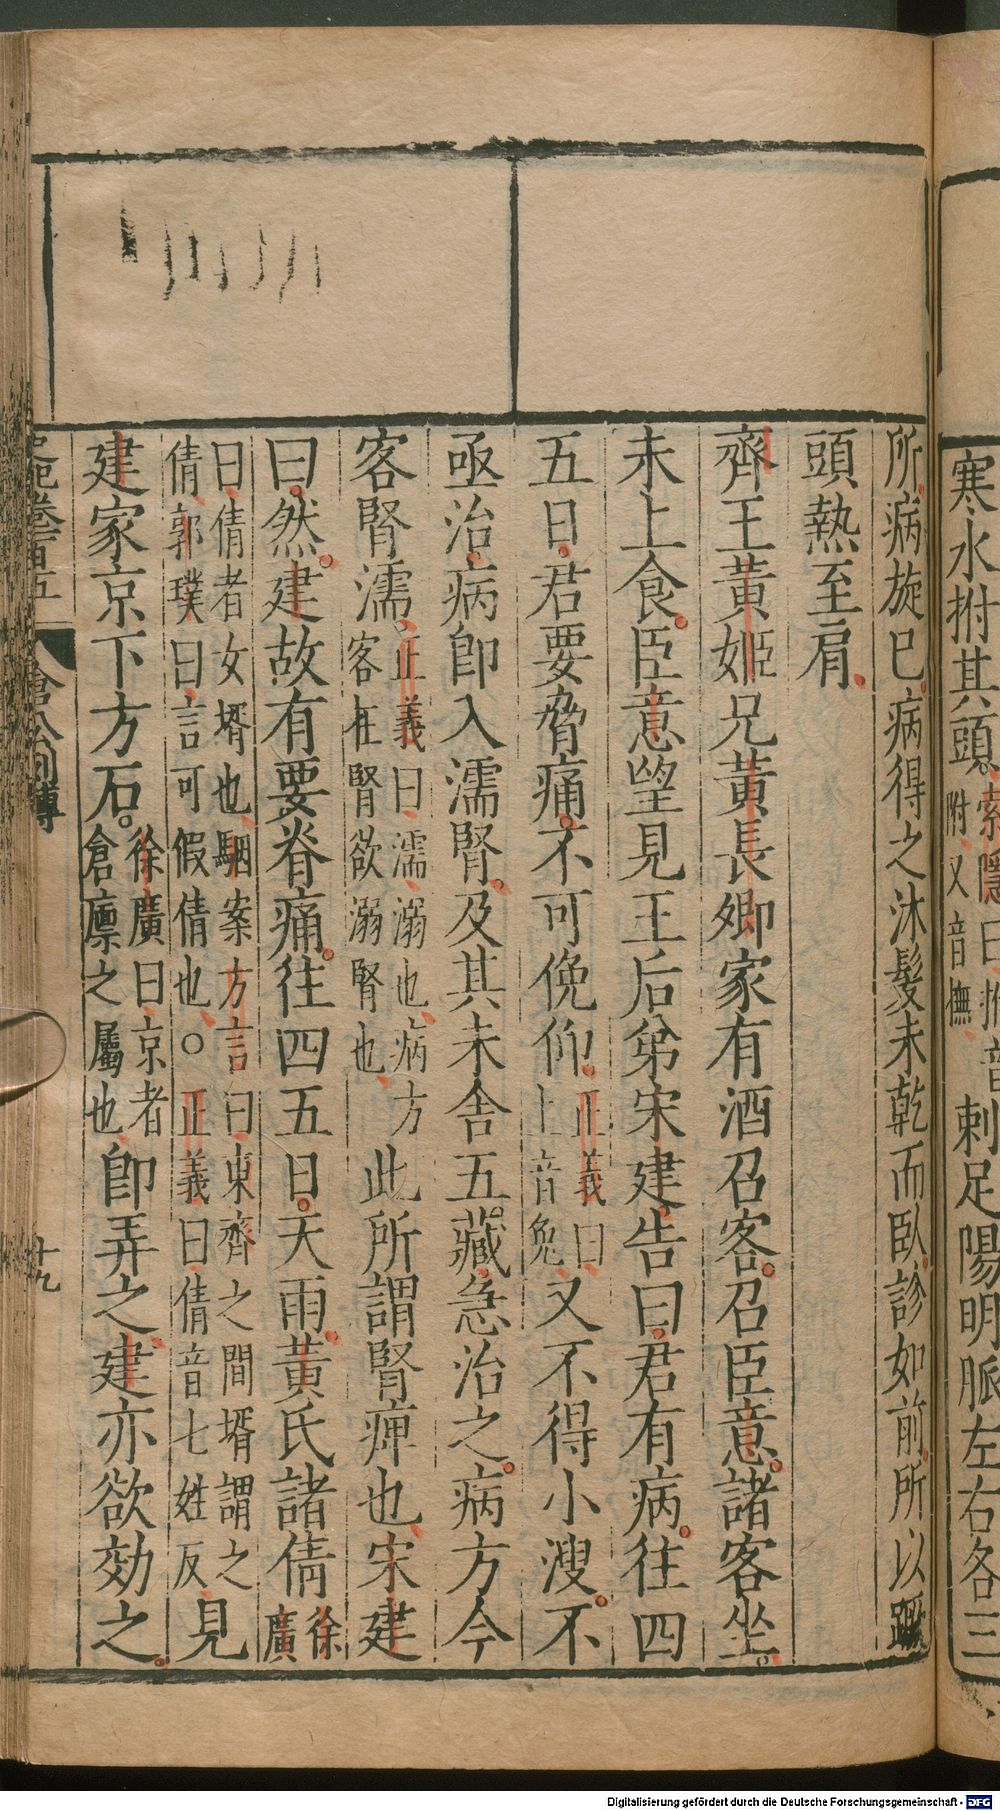 寒水拊其頭索隱曰拊音附又音撫刺足陽明脈左右各三
所病旋已病得之沐髮未乾而臥診如前所以蹶
頭熱至肩
齊王黃姬兄黃長卿家有酒召客召臣意諸客坐
未上食臣意望見王后弟宋建告曰君有病往四
五日君要脅痛不可俛仰正義曰上音免又不得小溲不
亟治病卽入濡腎及其未舍五藏急治之病方今
客腎濡正義曰濡溺也病方客在腎欲溺腎也此所謂腎痺也宋建
曰然建故有要脊痛往四五日天雨黃氏諸倩徐廣
曰倩者女壻也駰案方言曰東齊之間壻謂之倩郭璞曰言可假倩也○正義曰倩音七姓反見
建家京下方石徐廣曰京者倉廩之屬也卽弄之建亦欲効之
史記卷一百五 倉公列傳 十九
Digitalisierung gefördert durch die Deutsche Forschungsgemeinschaft - DFG